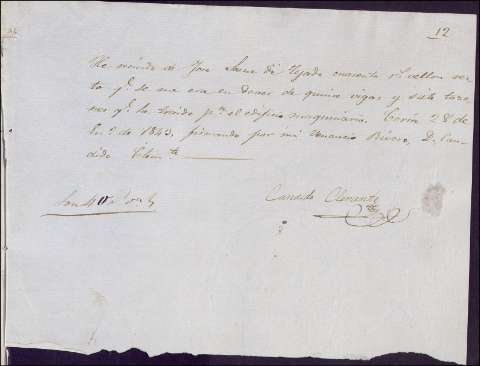 12
He recivido de Jose Saenz de Tejada cuarenta rs vellon res-
to qe se me era en dever de quince vigas y siete taxo-
nes qe he traido pa el edificio maquinaria. Coria 28 de
En.o de 1843, firmando por mi Venancio Rivero, D. Can-
dido Clemte
Son 40 rs
Canddo Clemente